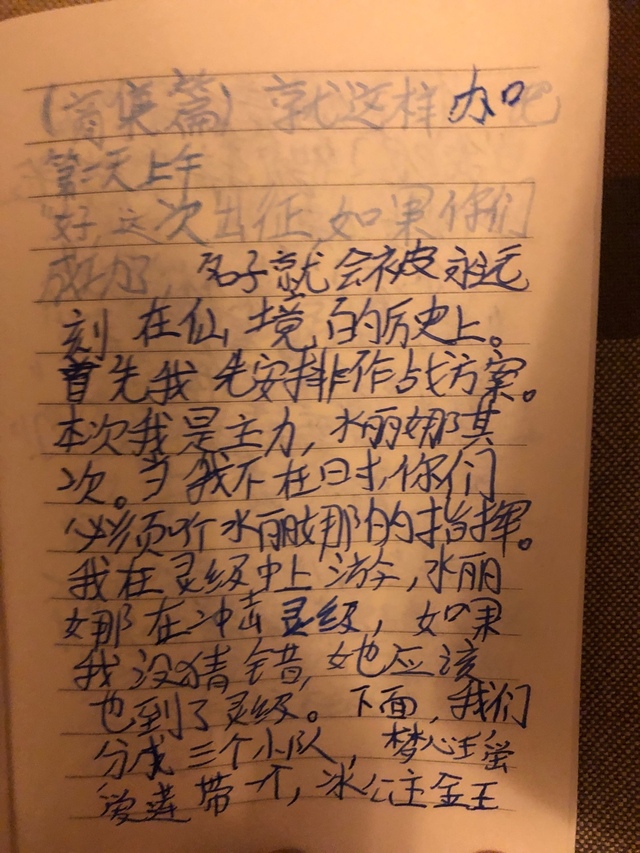 (首集篇) 就这样办吧
第一天上午
好,这次出征,如果你们
成功了,名子就会被永远
刻在仙境的历史上。
首先我先安排作战方案。
本次我是主力,水丽娜其
次。当我不在时,你们
必须听水丽娜的指挥。
我在灵级中上游,水丽
娜在冲击灵级,如果
我没猜错,她应该
也到了灵级。下面,我们
分成三个小队,梦心王
带一个,冰公主金王